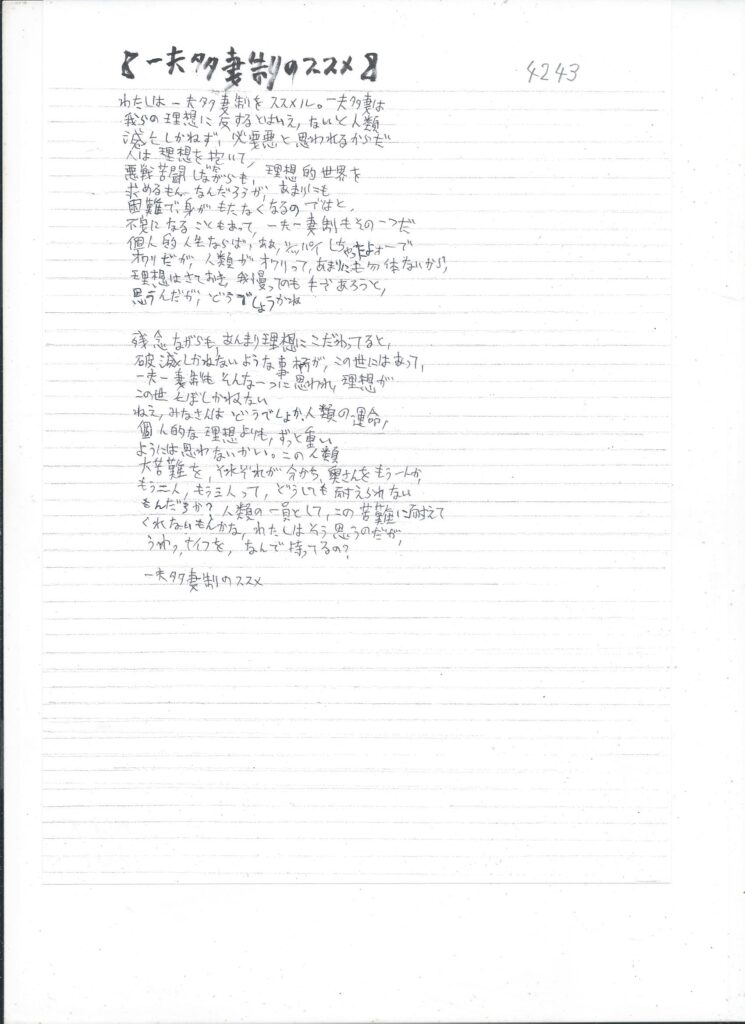 【一夫多妻制のススメ】
4243
わたしは一夫多妻制をススメル。一夫多妻は
我らの理想に反するとはいえ、ないと人類
滅亡しかねず、必要悪と思われるからだ
人は理想を抱いて、
悪戦苦闘しながらも、理想的世界を
求めるもんなんだろうが、あまりにも
困難で、身がもたなくなるのではと、
不安になることもあって、一夫一妻制もその一つだ
個人的人生ならば、ああ、シッパイしちゃったよォーで
オワリだが、人類がオワリって、あまりにも勿体ないから、
理想はさておき、我慢ってのも手であろうと、
思うんだが、どうでしょうかね
残念ながらも、あんまり理想にこだわってると、
破滅しかねないような事柄が、この世にはあって、
一夫一妻制もそんな一つに思われ、理想が
この世とばしかねない
ねえ、みなさんはどうでしょか、人類の運命、
個人的な理想よりも、ずっと重い
ようには思わないかい。この人類
大苦難を、それぞれが分かち、奥さんをもう一人か、
もう二人、もう三人って、どうしても耐えられない
もんだろか？人類の一員として、この苦難に耐えて
くれないもんかな、わたしはそう思うのだが、
うわっ、ナイフを、なんで持ってるの？
一夫多妻制のススメ